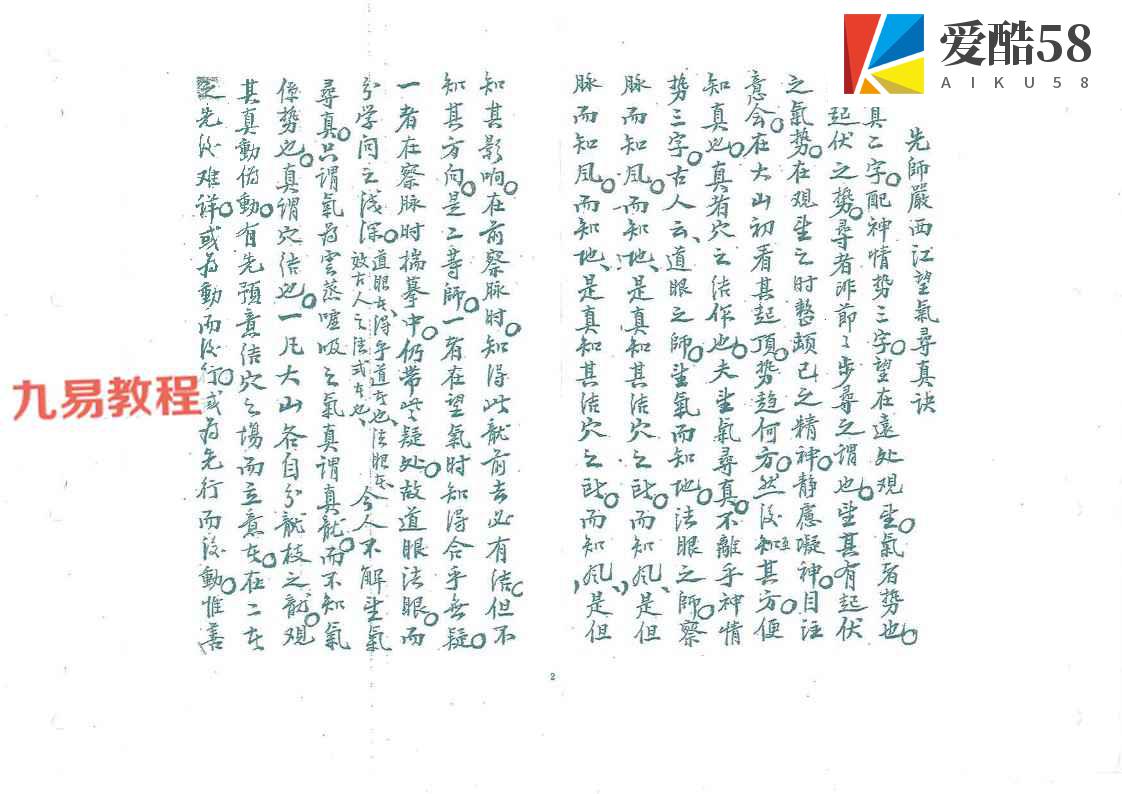 爱酷58
AIKU58
九易教程
先師嚴西江望氣尋真訣
真二字。配神情势三字。望在遠处观望。氣者势也。
起伏之势。尋者非節〻步尋之謂也。望其有起伏
之氣势。在观望之时。整頓己之精神。静慮凝神。目注
意会。在大山初看其起頂。势趋何方。然後知其方。便
知真也。真者穴之結作也。夫望氣尋真。不離乎神情
势三字。古人云、道眼之师。望氣而知地。法眼之師。察
脉而知風。而知地、是真知其结穴之所。而知風、是但
脉而知風。而知地、是真知其结穴之所。而知风、是但
知其影响。在前察脉时。知得此龍前去必有结。但不
知其方向。是二等師。一者在望氣时知得合乎無疑。
一者在察脉时揣摹中。仍带些疑处。故道眼法眼。而
分学问之浅深。道眼在得乎道在也、法眼在效古人之法式在也、今人不解望氣
尋真。只謂氣为雲蒸嘘吸之氣。真謂真龍。而不知氣
係势也。真謂穴结也。一凡大山各自分龍枝之龍。观
其真動偽動。有先預意结穴之場而立意在。在二在
之先後难詳。或为動而後行。或为先行而後動。惟善
2